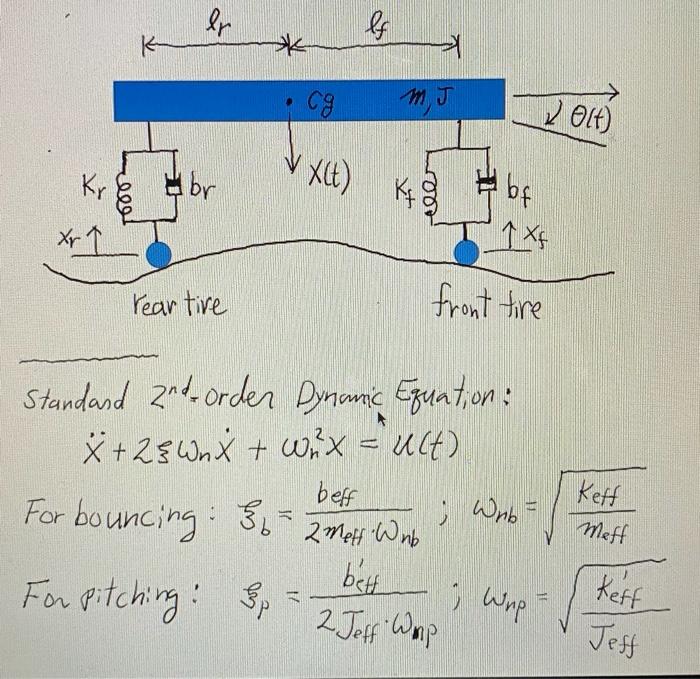 lr lf
cg m, J
θ(t)
Kr br X(t) Kf bf
Xr Xf
rear tire front tire
Standard 2nd-order Dynamic Equation:
Ẍ + 2ξωnẊ + ωn²X = u(t)
For bouncing: ξb = beff / 2meff·ωnb ; ωnb = √(Keff / meff)
For pitching: ξp = b'eff / 2Jeff·ωnp ; ωnp = √(K'eff / Jeff)